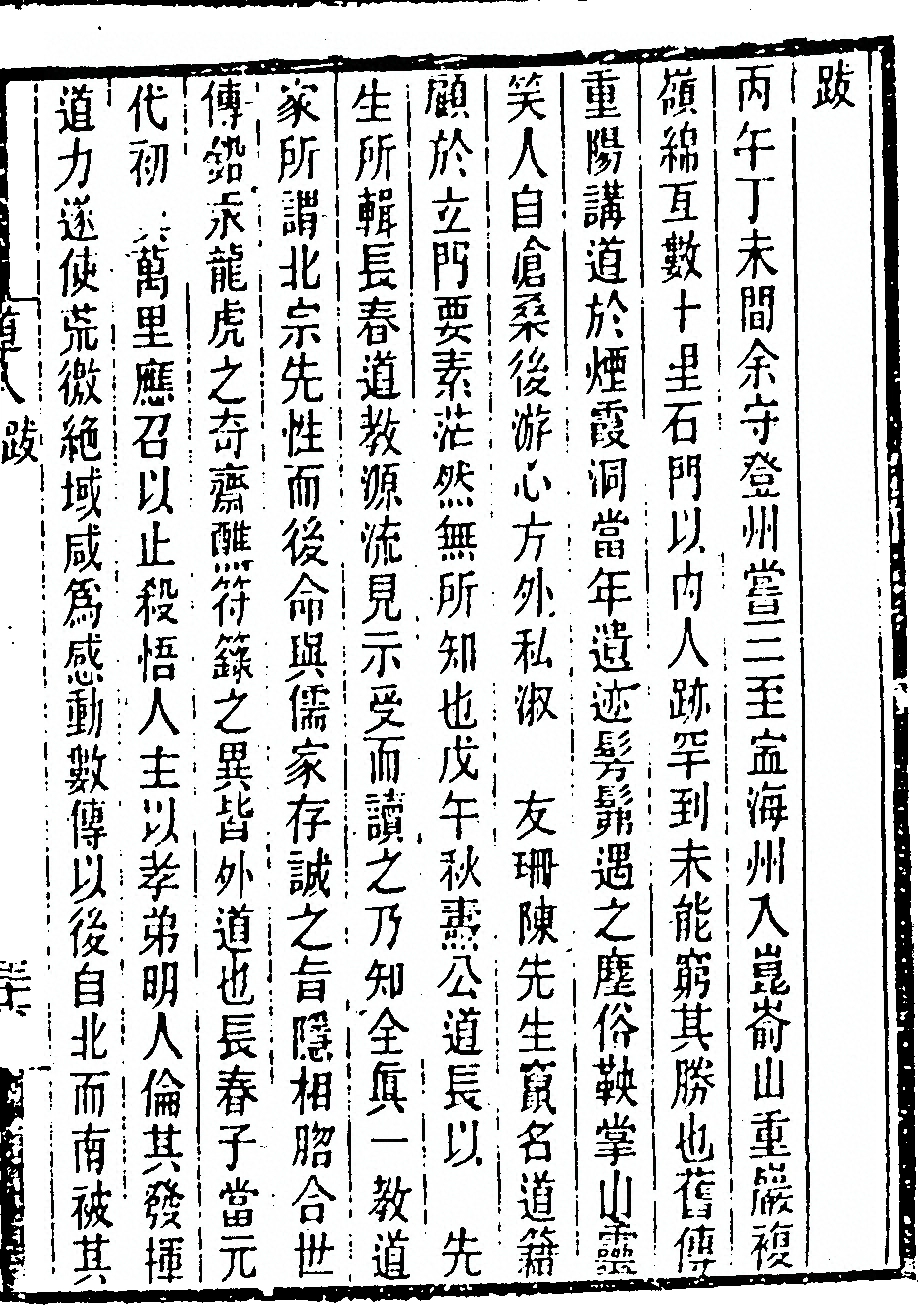 跋
丙午丁未間余守登州嘗三至寍海州入崑崙山重巖複
嶺綿亙數十里石門以內人跡罕到未能窮其勝也舊傳
重陽講道於煙霞洞當年遺迹髣髴遇之塵俗鞅掌山靈
笑人自滄桑後游心方外私淑　友珊陳先生竄名道籍
顧於立門要素茫然無所知也戊午秋燾公道長以　先
生所輯長春道教源流見示受而讀之乃知全眞一教道
家所謂北宗先性而後命與儒家存誠之旨隱相脗合世
傳鉛汞龍虎之奇齋醮符籙之異皆外道也長春子當元
代初　萬里應召以止殺悟人主以孝弟明人倫其發揮
道力遂使荒徼絶域咸爲感動數傳以後自北而南被其
跋